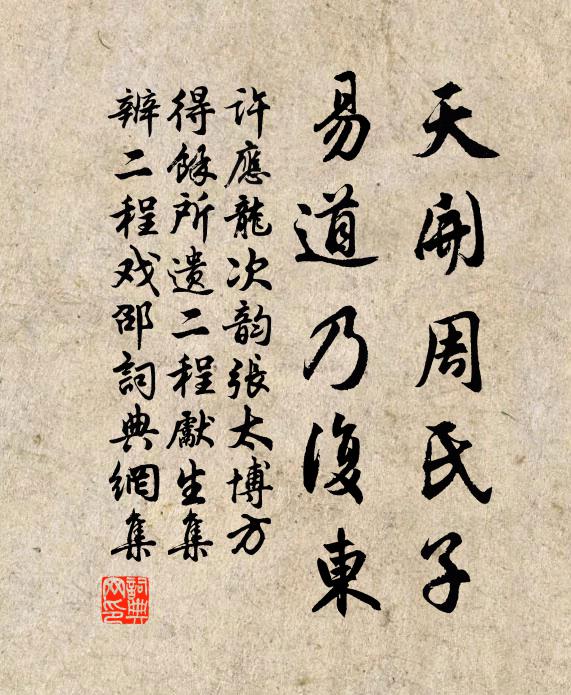 天開周氏子
易道乃復東
許應龍次韵張太博方
得餘所遺二程獻生集
辨二程戏邵詞典網集